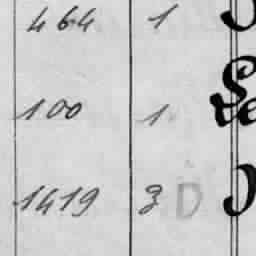 464 1
100 1
1419 3 D